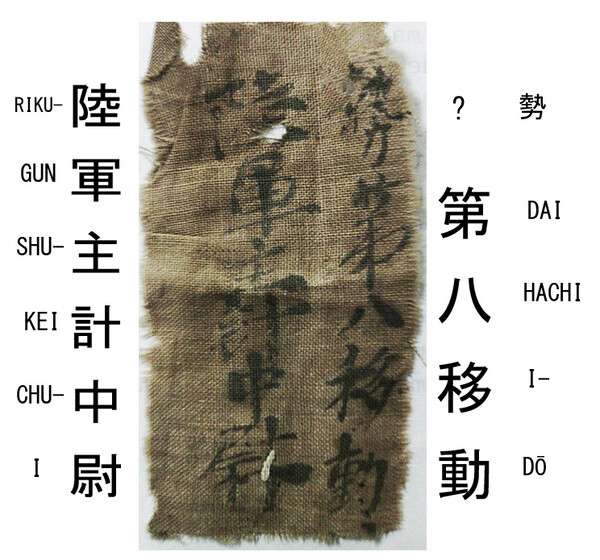 RIKU- 陸
GUN 軍
SHU- 主
KEI 計
CHU- 中
I 尉
第八移動
陸軍主計中尉
? 勢
第 DAI
八 HACHI
移 I-
動 DŌ